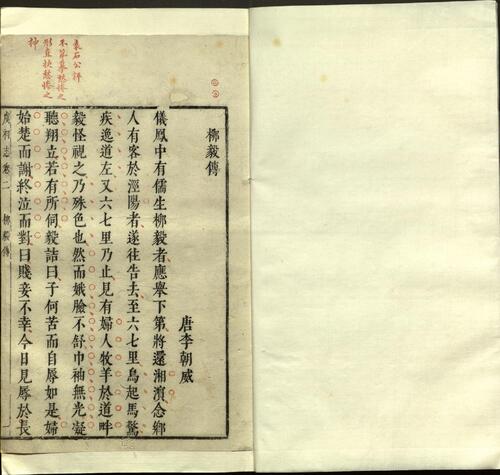 袁石公評
不第摹愁慘之
形直抉愁慘之
神
柳毅傳
唐李朝威
儀鳳中有儒生柳毅者應舉下第將還湘濱念鄉
人有客於涇陽者遂往告去至六七里鳥起馬驚
疾逸道左又六七里乃止見有婦人牧羊於道畔
毅怪視之乃殊色也然而娥臉不舒巾袖無光凝
聽翔立若有所伺毅詰曰子何苦而自辱如是婦
始楚而謝終泣而對曰賤妾不幸今日見辱於長
虞初志卷二
柳毅傳